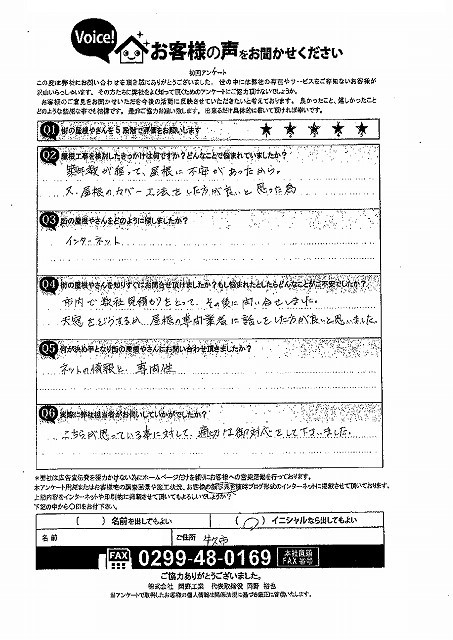 Voice!
お客様の声をお聞かせください
初回アンケート
この度は弊社にお問い合わせを頂き誠にありがとうございました。世の中には弊社の存在やサービスをご存知ないお客様が
沢山いらっしゃいます。そのかたたちに弊社をよく知って頂くためのアンケートにご協力頂けないでしょうか。
お客様のご意見をお聞かせいただき今後の活動に反映させていただきたいと考えております。良かったこと、嬉しかったこと
どのような些細な事でも結構です。是非ご協力お願い致します。出来るだけ具体的に書いて頂ければ幸いです。
Q1 街の屋根やさんを5段階で評価をお願いします ★ ★ ★ ★ ★
Q2 屋根工事を検討したきっかけは何ですか?どんなことで悩まれていましたか?
築年数が経って、屋根に不安があったから。
又、屋根のカバー工法をした方が良いと思った為
Q3 街の屋根やさんをどのように探しましたか?
インターネット
Q4 街の屋根やさんを知りすぐにお問合せ頂けましたか?もし悩まれたとしたらどんなことがご不安でしたか?
市内で数社見積りをとって、その後に問い合せいました。
天窓をどうするか、屋根の専門業者に話をした方が良いと思いました。
Q5 何が決め手となり街の屋根やさんにお問い合わせ頂きましたか?
ネットの情報と、専門性
Q6 実際に弊社担当者がお伺いしていかがでしたか?
こちらが思っている事に対して、適切な御対応をして下さいました。
*弊社は広告宣伝費を極力かけない為にホームページだけを頼りお客様への営業活動を行っております。
上記内容をインターネットや印刷物に掲載させて頂いてもよろしいでしょうか?
下記の中から〇印をお付下さい。
( ) 名前を出してもよい
(〇) イニシャルなら出してもよい
名前
ご住所 牛久市
FAX 0299-48-0169 本社直通 FAX番号
ご協力ありがとうございました。